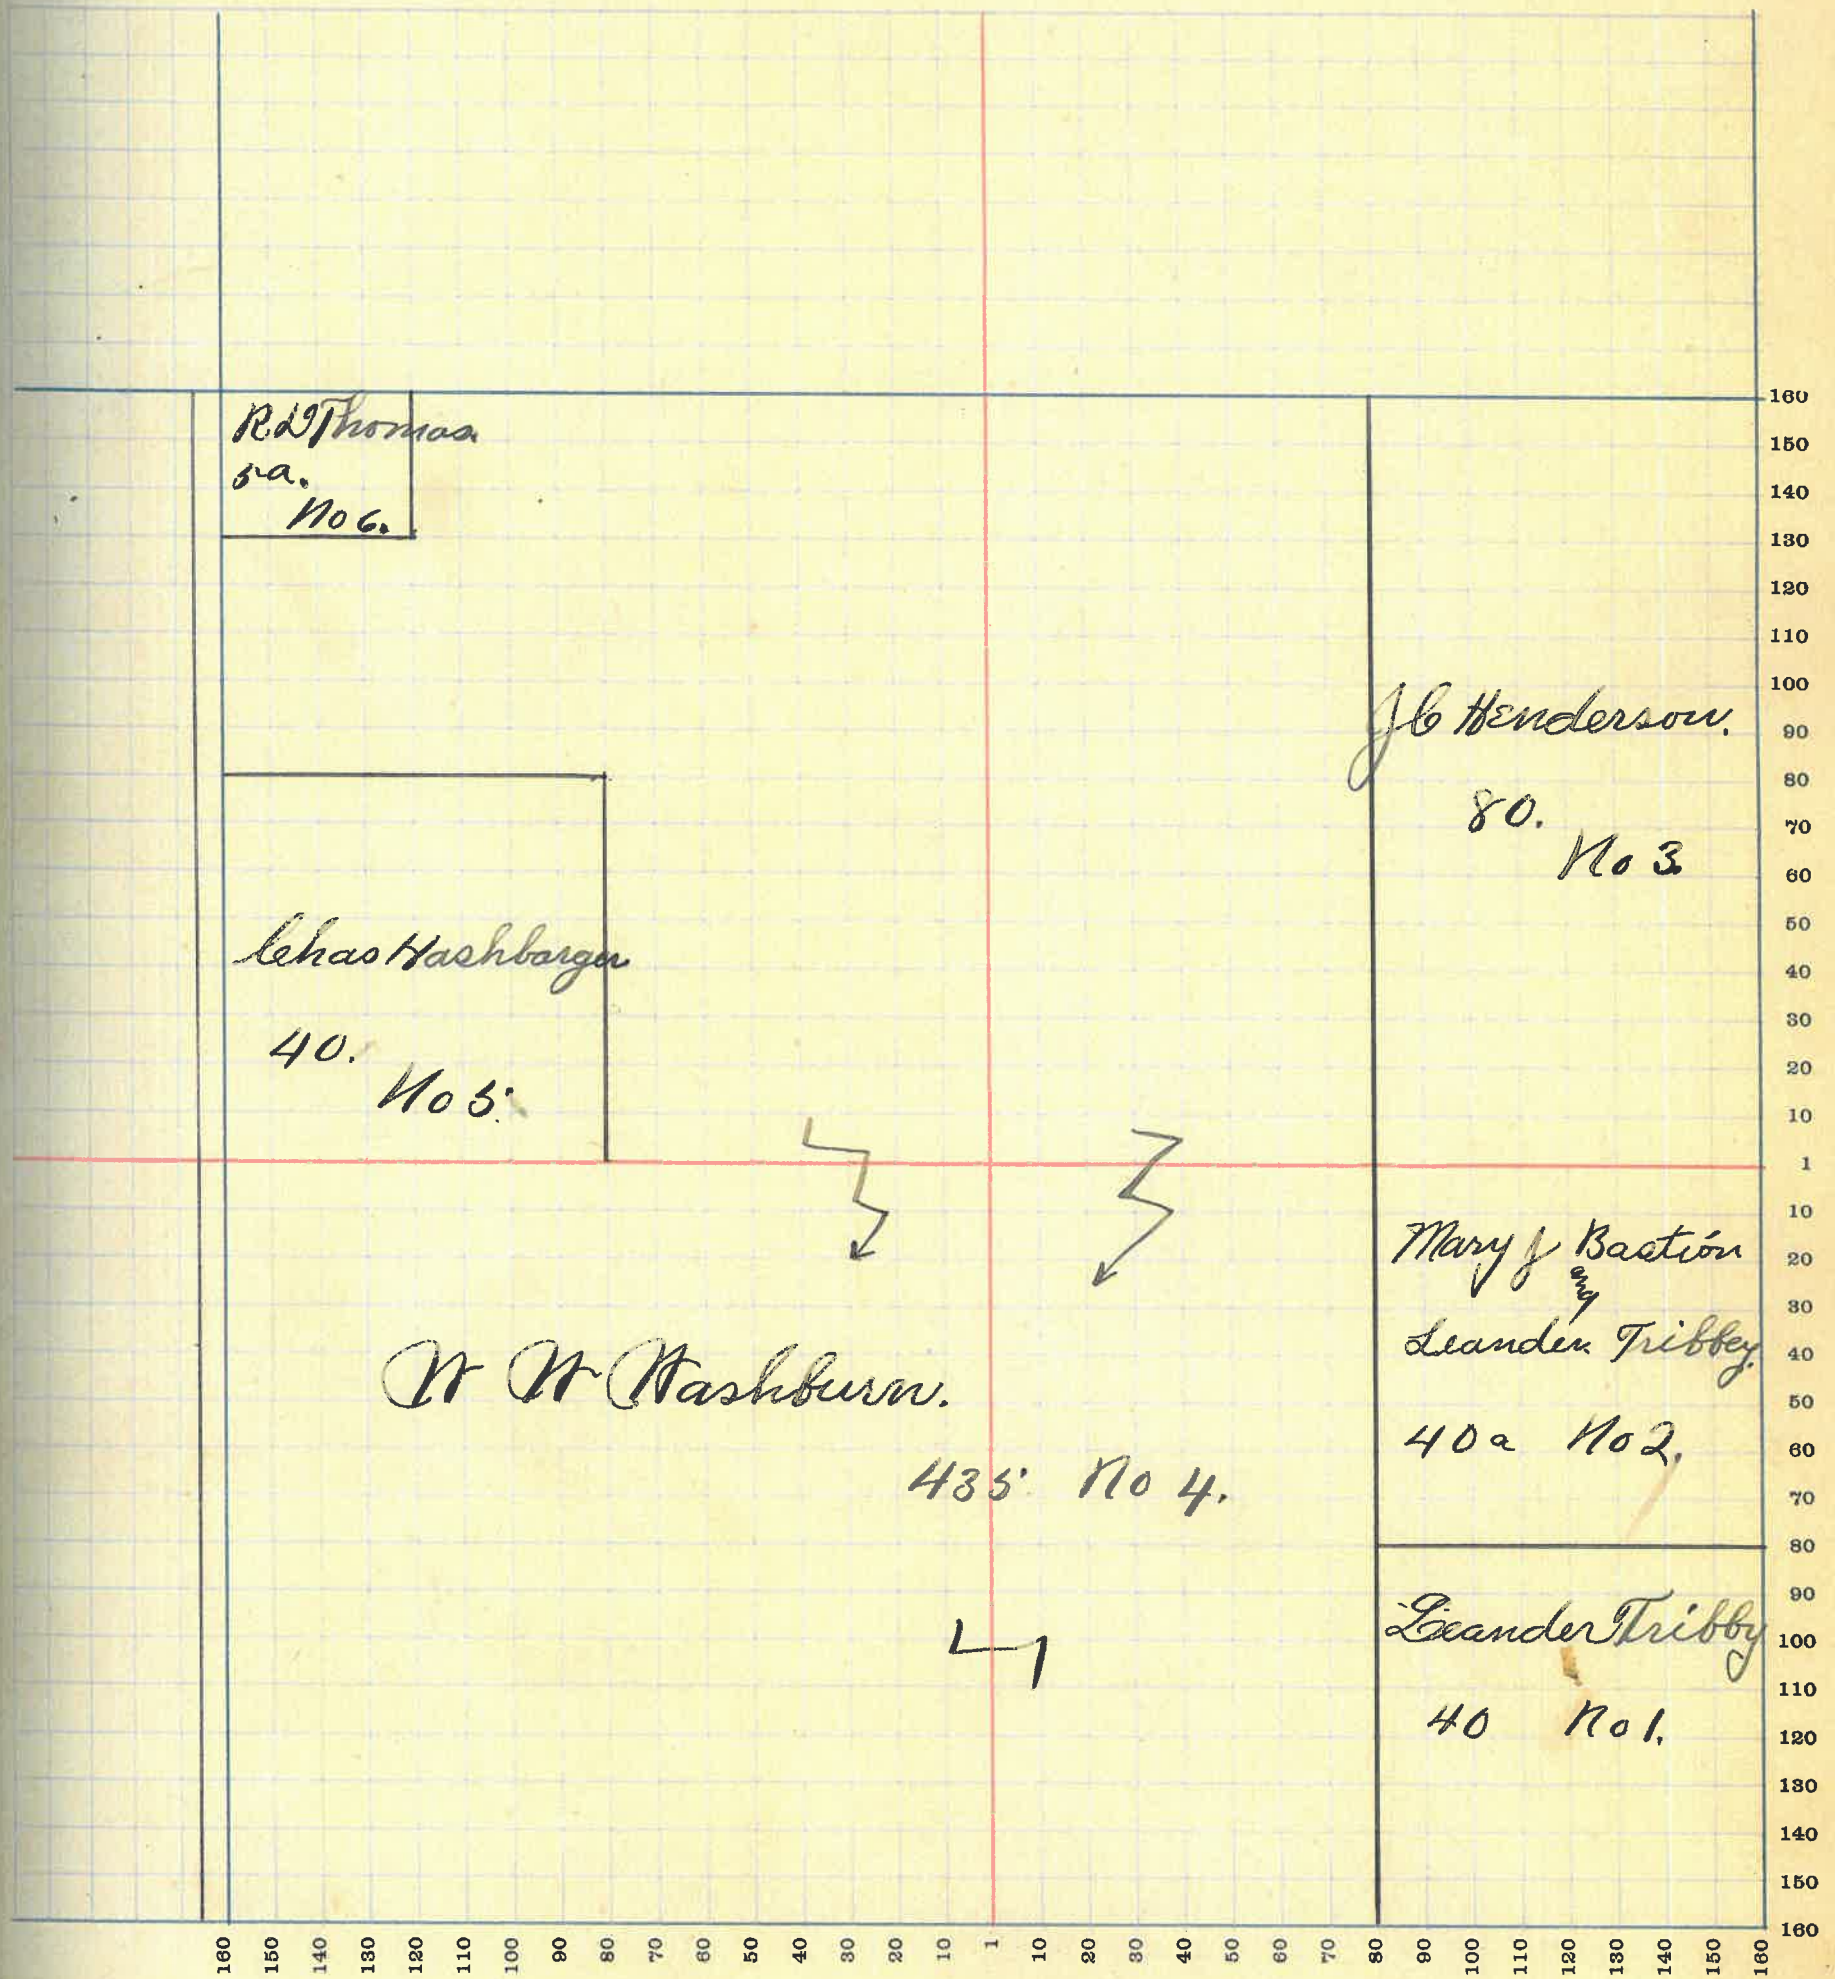 R D Thomas
5 a.
No 6.
J C Henderson.
80.
No 3.
Chas Hashbarger
40.
No 5.
Mary J Bastion
and
Leander Tribbey.
40a No 2.
W W Washburn.
435 No 4.
Leander Tribby
40 No 1.
160
150
140
130
120
110
100
90
80
70
60
50
40
30
20
10
1
10
20
30
40
50
60
70
80
90
100
110
120
130
140
150
160
160 150 140 130 120 110 100 90 80 70 60 50 40 30 20 10 1 10 20 30 40 50 60 70 80 90 100 110 120 130 140 150 160